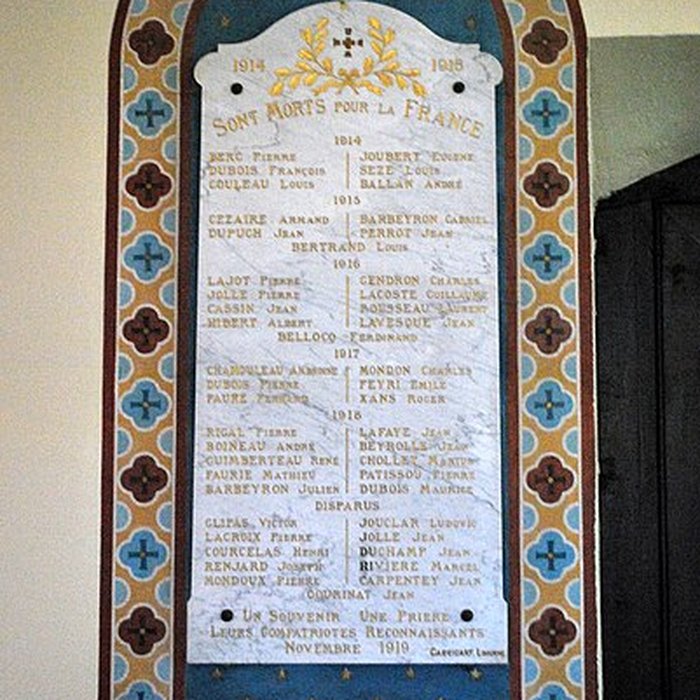 1914 1918
SONT MORTS POUR LA FRANCE
1914
BERG PIERRE JOUBERT EUGENE
DUBOIS FRANÇOIS SEZE LOUIS
COULEAU LOUIS BALLAN ANDRÉ
1915
CEZAIRE ARMAND BARBEYRON GABRIEL
DUPUCH JEAN PERROT JEAN
BERTRAND LOUIS
1916
LAJOT PIERRE GENDRON CHARLES
JOLLE PIERRE LACOSTE GUILLAUME
CASSIN JEAN ROUSSEAU LAURENT
HIBERT ALBERT LAVESQUE JEAN
BELLOCQ FERDINAND
1917
CHAMOULEAU MONDON CHARLES
DUBOIS PIERRE PEYRI EMILE
FAURE FERNAND XANS ROGER
1918
RIGAL PIERRE LAFAYE JEAN
BOINEAU ANDRÉ BEYROLLE JEAN
GUIMBERTEAU RENÉ CHOLLET
FAURIE MATHIEU PATISSOU PIERRE
BARBEYRON JULIEN DUBOIS MAURICE
DISPARUS
GLIPAS VICTOR JOUCLAR LUDOVIC
LACROIX PIERRE JOLLE JEAN
COURCELAS HENRI DUCHAMP JEAN
RENJARD JOSEPH RIVIERE MARCEL
MONDOUX PIERRE CARPENTEY JEAN
GOURINAT JEAN
UN SOUVENIR UNE PRIERE
LEURS COMPATRIOTES RECONNAISSANTS
NOVEMBRE 1919